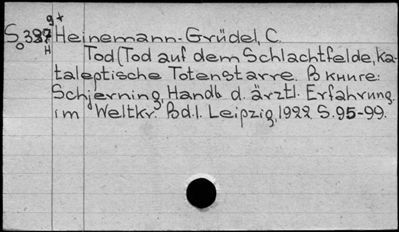 9*
S 387 Heinemann-Grüdel, C.
o H
Tod (Tod auf dem Schlachtfelde, Ka-
taleptische Totenstarre. В книге:
Schjerning, Handb d. ärztl. Erfahrung.
im Weltkr. Bd.I. Leipzig, 1922 S.95-99.